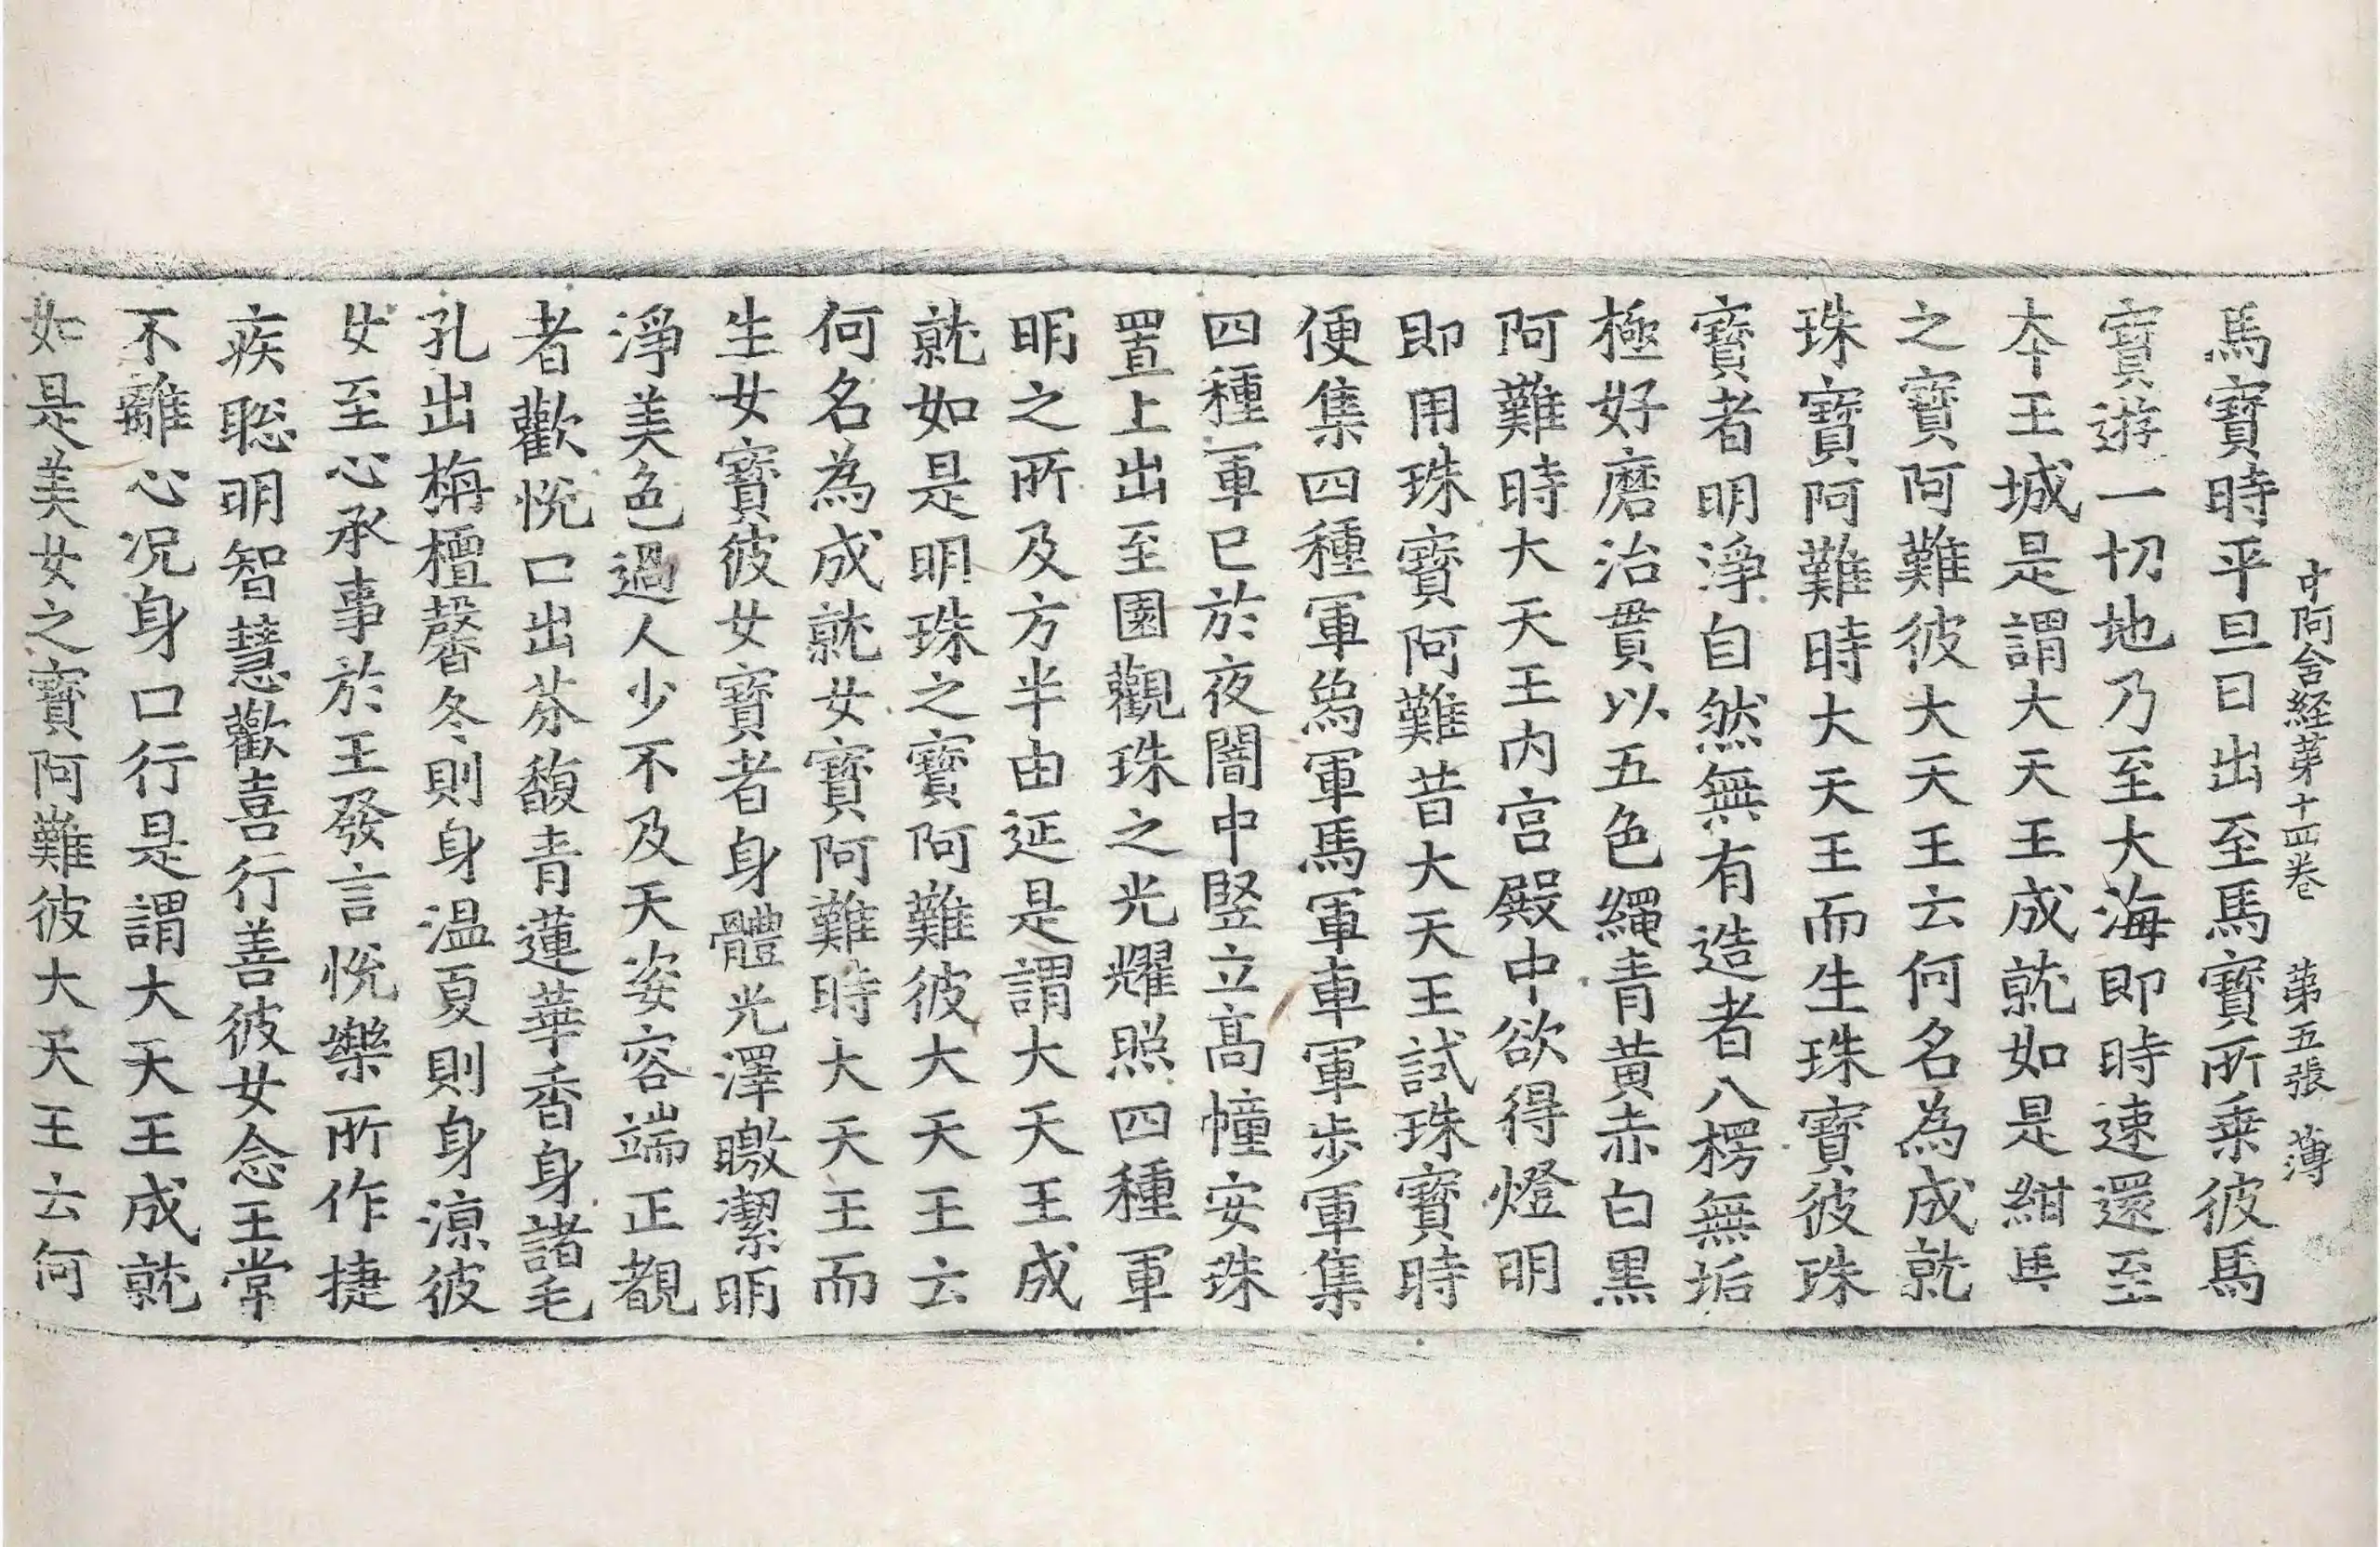 中阿含経苐十四巻　苐五張　薄
馬寶時平旦日出至馬寶所乗彼馬
寶遊一切地乃至大海即時速還至
夲王城是謂大天王成就如是紺馬
之寶阿難彼大天王云何名為成就
珠寶阿難時大天王而生珠寶彼珠
寶者明淨自然無有造者八楞無垢
極好磨治貫以五色繩青黄赤白黒
阿難時大天王内宫殿中欲得燈明
即用珠寶阿難昔大天王試珠寶時
便集四種軍象軍馬軍車軍步軍集
四種軍已於夜闇中竪立髙幢安珠
置上出至園觀珠之光耀照四種軍
明之所及方半由延是謂大天王成
就如是明珠之寶阿難彼大天王云
何名為成就女寶阿難時大天王而
生女寶彼女寶者身體光澤曒潔明
淨美色過人少不及天姿容端正覩
者歡悅口出芬馥青蓮華香身諸毛
孔出栴檀馨冬則身温夏則身涼彼
女至心承事於王發言悅樂所作捷
疾聡明智慧歡喜行善彼女念王常
不離心况身口行是謂大天王成就
如是美女之寶阿難彼大天王云何